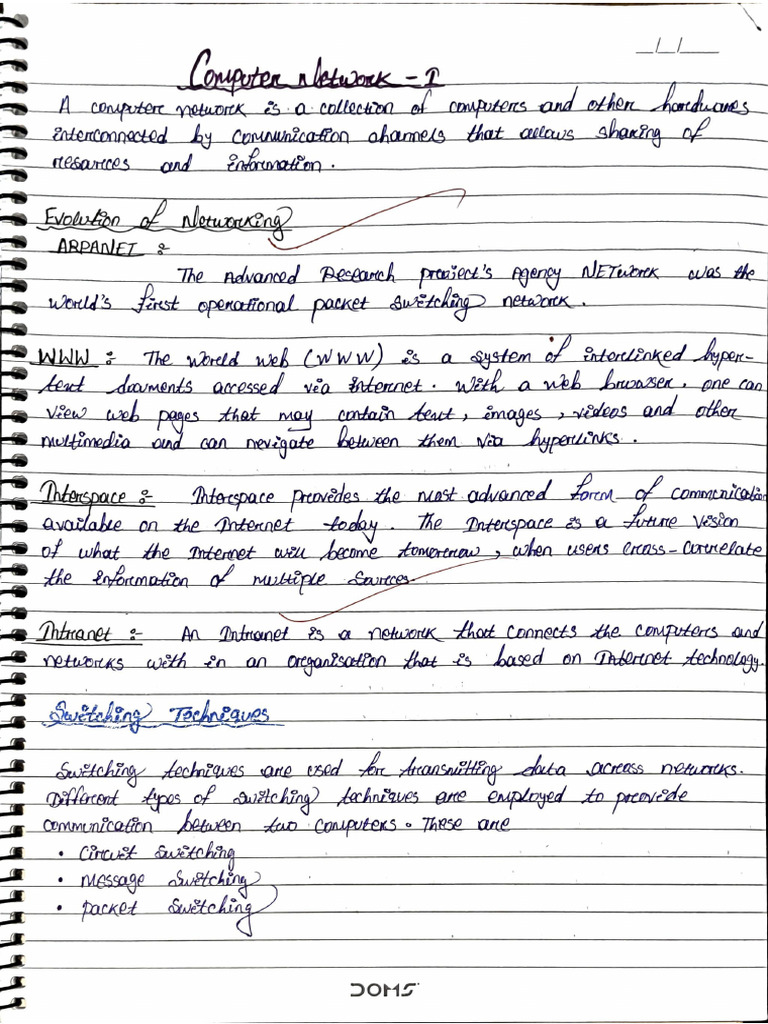 __/__/____
Computer Network - I
A computer network is a collection of computers and other hardwares
interconnected by communication channels that allows sharing of
resources and information.
Evolution of Networking
ARPANET :-
The Advanced Research project's Agency NETwork was the
world's first operational packet switching network.
WWW :- The World Web (WWW) is a system of interlinked hyper-
text douments accessed via internet. With a web browser, one can
view web pages that may contain text, images, videos and other
multimedia and can nevigate between them via hyperlinks.
Interspace :- Interspace provides the most advanced form of communication
available on the Internet today. The Interspace is a future vision
of what the Internet will become tomorrow, when users cross-correlate
the information of multiple sources.
Intranet :- An Intranet is a network that connects the computers and
networks with in an organisation that is based on Internet technology.
Switching Techniques
Switching techniques are used for transmitting data across networks.
Different types of switching techniques are employed to provide
communication between two computers. These are
• Circuit switching
• Message switching
• Packet switching
DOMS